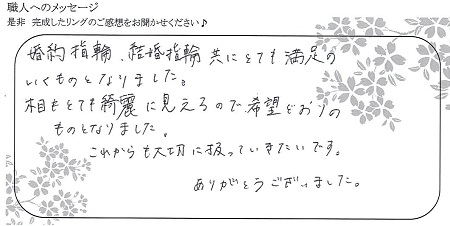 職人へのメッセージ
是非 完成したリングのご感想をお聞かせください♪
婚約指輪、結婚指輪共にとても満足の
いくものとなりました。
木目もとても綺麗に見えるので希望どおりの
ものとなりました。
これからも大切に扱っていきたいです。
ありがとうございました。